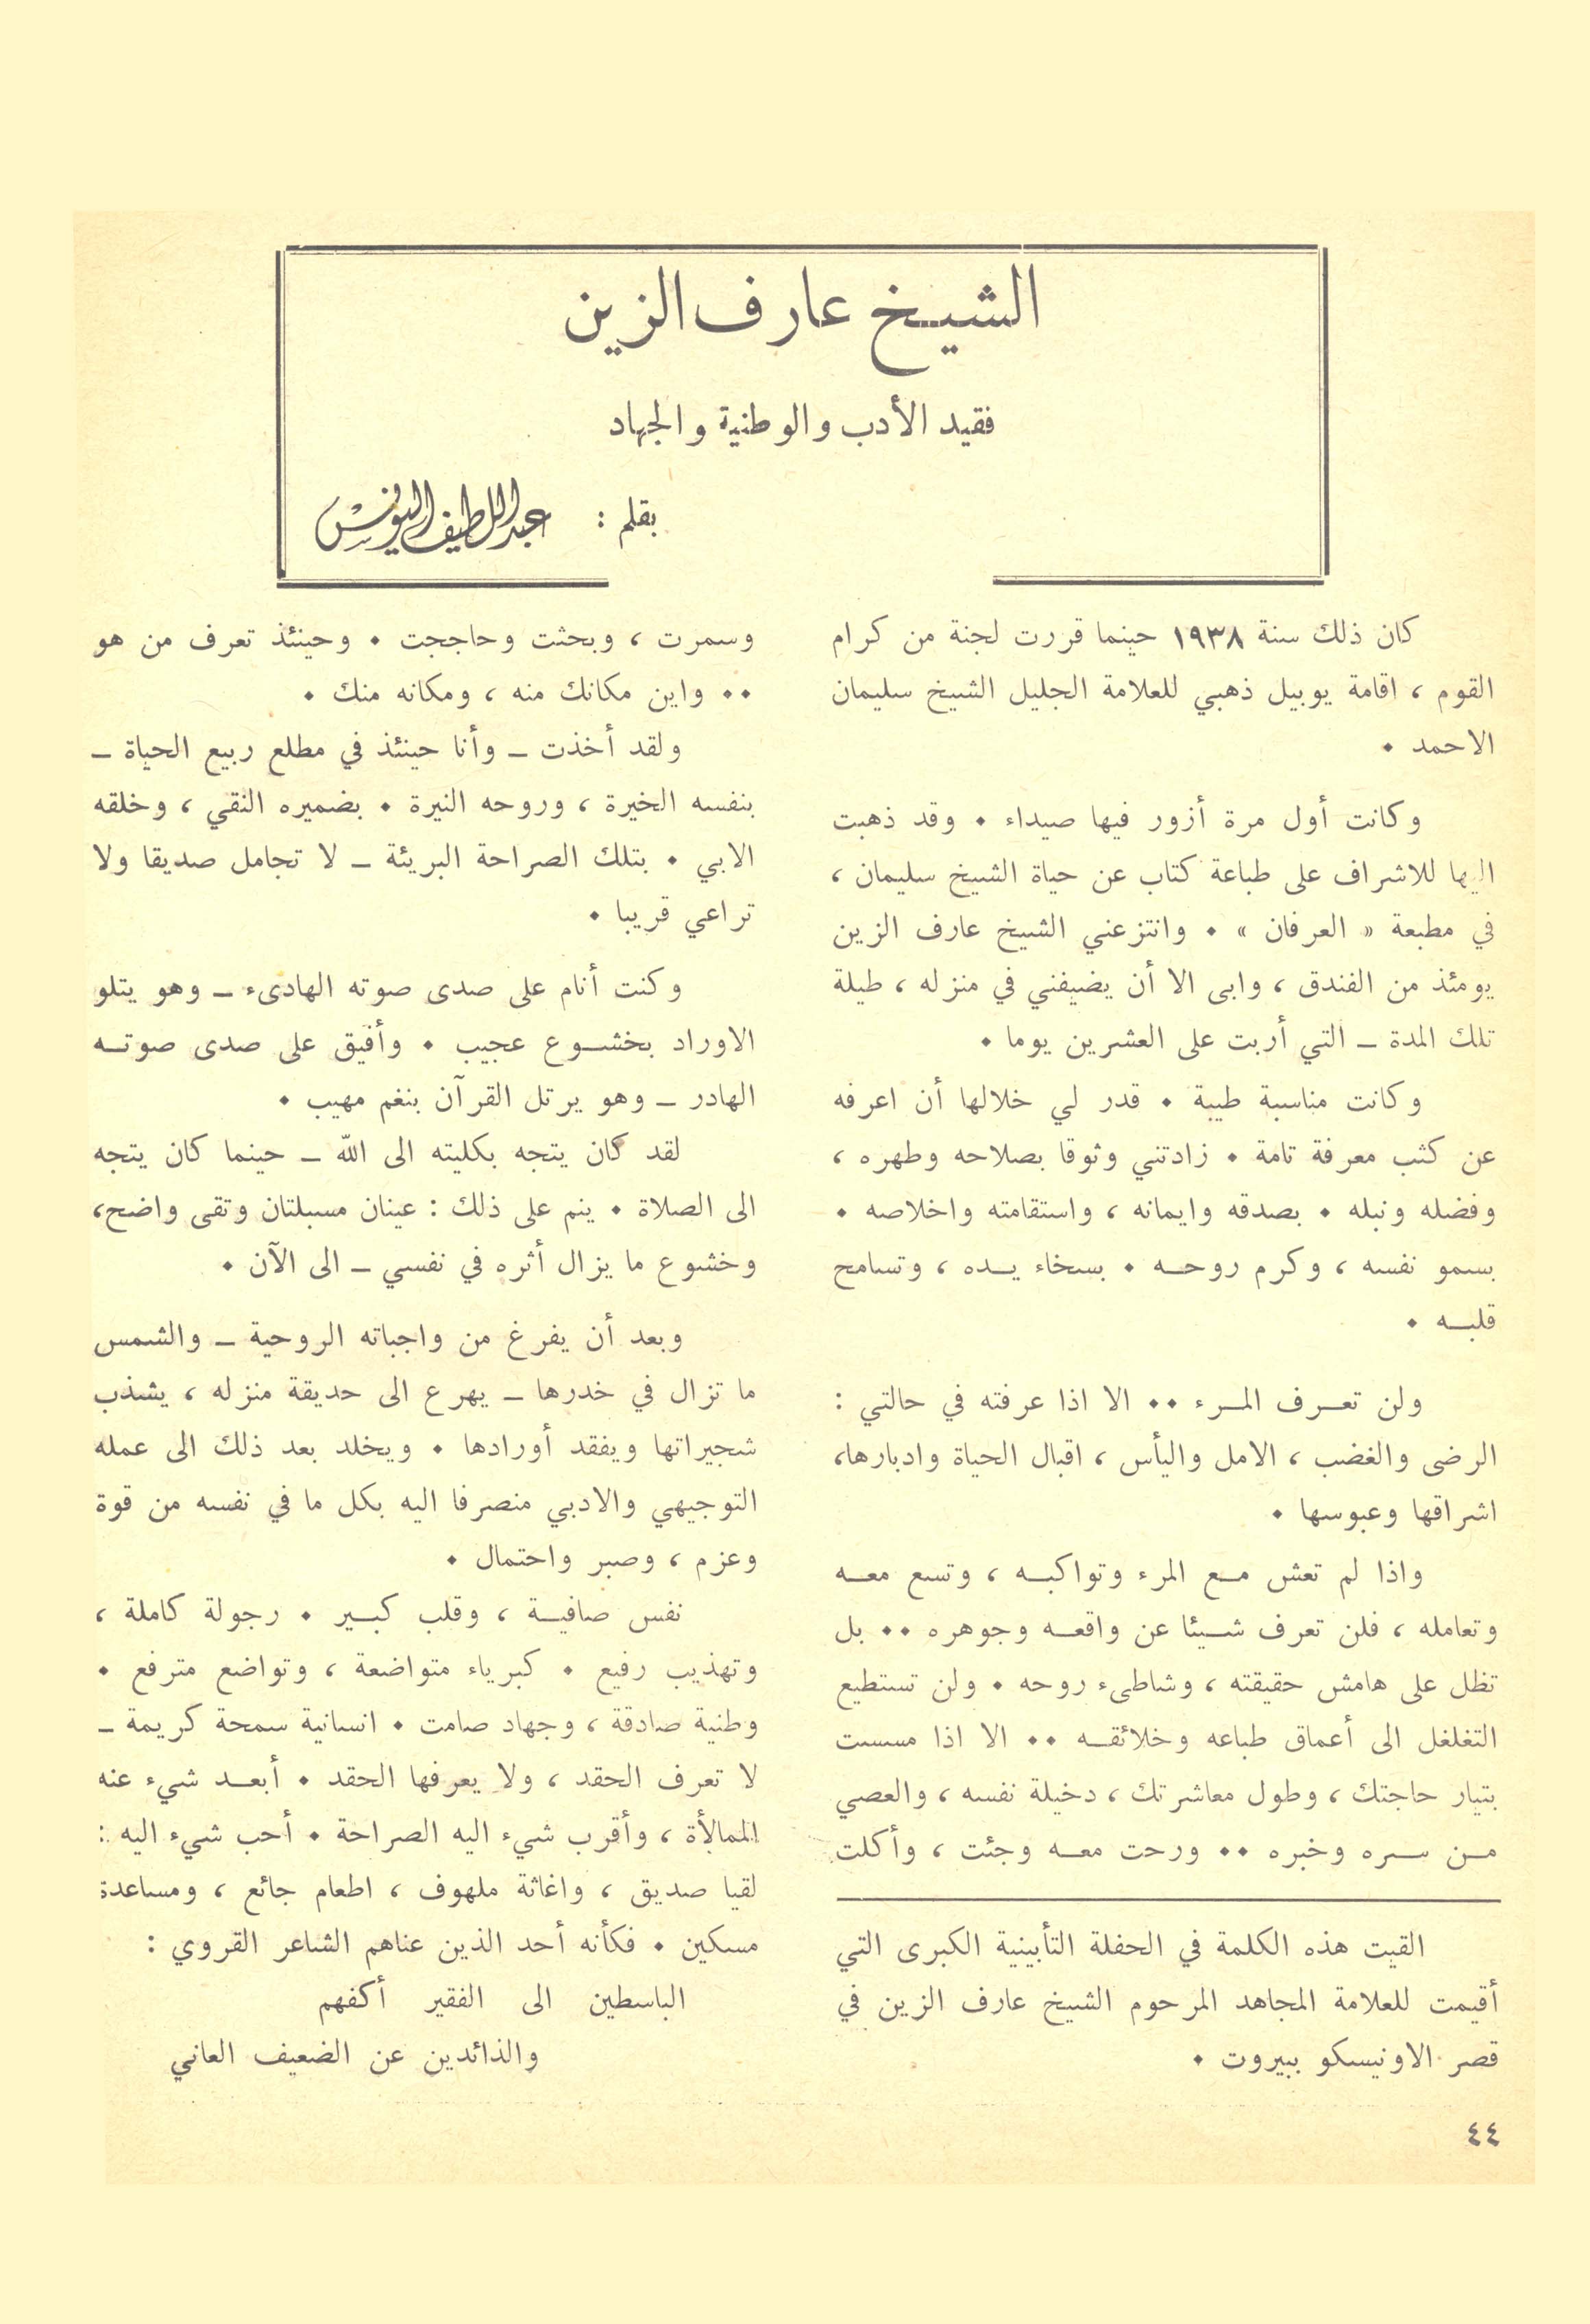 الشيخ عارف الزين
فقيد الأدب والوطنية والجهاد
بقلم : عبد اللطيف اليونس
كان ذلك سنة ١٩٣٨ حينما قررت لجنة من كرام
القوم ، اقامة يوبيل ذهبي للعلامة الجليل الشيخ سليمان
الاحمد •
وكانت أول مرة أزور فيها صيداء • وقد ذهبت
اليها للاشراف على طباعة كتاب عن حياة الشيخ سليمان ،
في مطبعة « العرفان » • وانتزعني الشيخ عارف الزين
يومئذ من الفندق ، وابى الا أن يضيفني في منزله ، طيلة
تلك المدة ـ التي أربت على العشرين يوما •
وكانت مناسبة طيبة • قدر لي خلالها أن اعرفه
عن كثب معرفة تامة • زادتني وثوقا بصلاحه وطهره ،
وفضله ونبله • بصدقه وايمانه ، واستقامته واخلاصه •
بسمو نفسه ، وكرم روحـه • بسخاء يـده ، وتسامح
قلبـه •
ولن تعـرف المـرء •• الا اذا عرفته في حالتي :
الرضى والغضب ، الامل واليأس ، اقبال الحياة وادبارها،
اشراقها وعبوسها •
واذا لم تعش مـع المرء وتواكبـه ، وتسع معـه
وتعامله ، فلن تعرف شـيئا عن واقعـه وجوهره •• بل
تظل على هامش حقيقته ، وشاطىء روحه • ولن تستطيع
التغلغل الى أعماق طباعه وخلائقـه •• الا اذا مسست
بتيار حاجتك ، وطول معاشرتك ، دخيلة نفسه ، والعصي
مـن سـره وخبره •• ورحت معـه وجئت ، وأكلت
القيت هذه الكلمة في الحفلة التأبينية الكبرى التي
أقيمت للعلامة المجاهد المرحوم الشيخ عارف الزين في
قصر الاونيسكو ببيروت •
وسمرت ، وبحثت وحاججت • وحينئذ تعرف من هو
•• واين مكانك منه ، ومكانه منك •
ولقد أخذت ـ وأنا حينئذ في مطلع ربيع الحياة ـ
بنفسه الخيرة ، وروحه النيرة • بضميره النقي ، وخلقه
الابي • بتلك الصراحة البريئة ـ لا تجامل صديقا ولا
تراعي قريبا •
وكنت أنام على صدى صوته الهادىء ـ وهو يتلو
الاوراد بخشـوع عجيب • وأفيق على صدى صوتـه
الهادر ـ وهو يرتل القرآن بنغم مهيب •
لقد كان يتجه بكليته الى الله ـ حينما كان يتجه
الى الصلاة • ينم على ذلك : عينان مسبلتان وتقى واضح،
وخشوع ما يزال أثره في نفسي ـ الى الآن •
وبعد أن يفرغ من واجباته الروحية ـ والشمس
ما تزال في خدرها ـ يهرع الى حديقة منزله ، يشذب
شجيراتها ويفقد أورادها • ويخلد بعد ذلك الى عمله
التوجيهي والادبي منصرفا اليه بكل ما في نفسه من قوة
وعزم ، وصبر واحتمال •
نفس صافيـة ، وقلب كبـير • رجولة كاملة ،
وتهذيب رفيع • كبرياء متواضعة ، وتواضع مترفع •
وطنية صادقة ، وجهاد صامت • انسانية سمحة كريمة ـ
لا تعرف الحقد ، ولا يعرفها الحقد • أبعـد شيء عنه
الممالأة ، وأقرب شيء اليه الصراحة • أحب شيء اليه :
لقيا صديق ، واغاثة ملهوف ، اطعام جائع ، ومساعدة
مسكين • فكأنه أحد الذين عناهم الشاعر القروي :
الباسطين الى الفقير أكفهم
والذائدين عن الضعيف العاني
٤٤